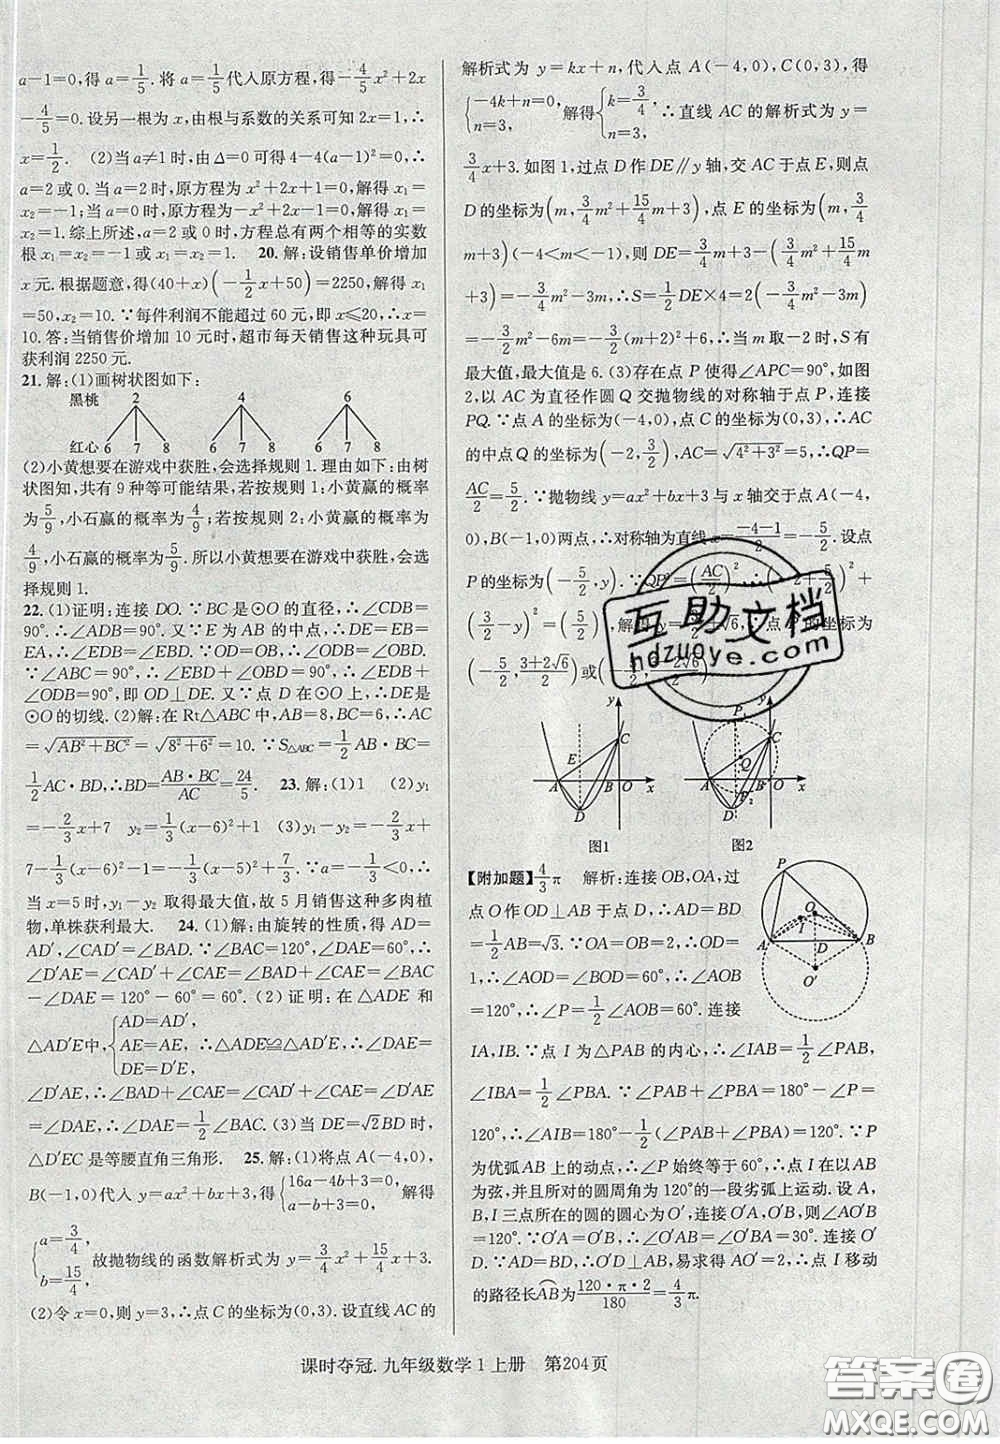 a-1=0,得 a=1/5.将 a=1/5代入原方程,得-4/5x²+2x
-4/5=0.设另一根为 x,由根与系数的关系可知 2x=1,∴
x=1/2. (2)当 a≠1 时,由 Δ=0 可得 4-4(a-1)²=0,∴
a=2 或 0.当 a=2 时,原方程为 x²+2x+1=0,解得 x₁=
x₂=-1;当 a=0 时,原方程为-x²+2x-1=0,解得 x₁=
x₂=1.综上所述,a=2 或 0 时,方程总有两个相等的实数
根 x₁=x₂=-1 或 x₁=x₂=1. 20.解:设销售单价增加
x 元.根据题意,得(40+x)(-1/2x+50)=2250,解得 x₁
=50,x₂=10.∵每件利润不能超过 60 元,即 x⩽20,∴x=
10.答:当销售价增加 10 元时,超市每天销售这种玩具可
获利润 2250 元.
21.解:(1)画树状图如下:
黑桃 2 4 6
红心 6 7 8 6 7 8 6 7 8
(2)小黄想要在游戏中获胜,会选择规则 1.理由如下:由树
状图知,共有 9 种等可能结果,若按规则 1:小黄赢的概率
为5/9,小石赢的概率为4/9;若按规则 2:小黄赢的概率为
4/9,小石赢的概率为5/9.所以小黄想要在游戏中获胜,会选
择规则 1.
22.(1)证明:连接 DO.∵BC 是⊙O 的直径,∴∠CDB=
90°.∴∠ADB=90°.又∵E 为 AB 的中点,∴DE=EB=
EA,∴∠EDB=∠EBD.∵OD=OB,∴∠ODB=∠OBD.
∵∠ABC=90°,∴∠EBD+∠OBD=90°.∴∠EDB+
∠ODB=90°,即 OD⊥DE.又∵点 D 在⊙O 上,∴DE是
⊙O 的切线.(2)解:在 Rt△ABC 中,AB=8,BC=6,∴AC
=√(AB²+BC²)=√(8²+6²)=10.∵S△ABC=1/2AB·BC=
1/2AC·BD,∴BD=AB·BC/AC=24/5. 23.解:(1)1 (2)y₁
=-2/3x+7 y₂=1/3(x-6)²+1 (3)y₁-y₂=-2/3x+
7-1/3(x-6)²-1=-1/3(x-5)²+7/3.∵a=-1/3<0,∴
当 x=5 时,y₁-y₂ 取得最大值,故 5 月销售这种多肉植
物,单株获利最大. 24.(1)解:由旋转的性质,得 AD=
AD′,∠CAD′=∠BAD.∵∠BAC=120°,∠DAE=60°,∴
∠D′AE=∠CAD′+∠CAE=∠BAD+∠CAE=∠BAC
-∠DAE=120°-60°=60°.(2)证明:在△ADE 和
△AD′E中,{AD=AD′, AE=AE, DE=D′E, ∴△ADE≌△AD′E.∴∠DAE=
∠D′AE,∴∠BAD+∠CAE=∠CAD′+∠CAE=∠D′AE=
∠DAE,∴∠DAE=1/2∠BAC.(3)当 DE=√2BD 时,
△D′EC 是等腰直角三角形. 25.解:(1)将点 A(-4,0),
B(-1,0)代入 y=ax²+bx+3,得{16a-4b+3=0, a-b+3=0, 解得
{a=3/4, b=15/4, 故抛物线的函数解析式为 y=3/4x²+15/4x+3.
(2)令 x=0,则 y=3,∴点 C 的坐标为(0,3).设直线 AC 的
解析式为 y=kx+n,代入点 A(-4,0),C(0,3),得
{-4k+n=0, n=3, 解得{k=3/4, n=3, ∴直线 AC 的解析式为 y=
3/4x+3.如图 1,过点 D 作 DE∥y 轴,交 AC 于点 E,则点
D 的坐标为(m,3/4m²+15/4m+3),点 E 的坐标为(m,
3/4m+3)(-4<m<-1),则 DE=3/4m+3-(3/4m²+15/4m
+3)=-3/4m²-3m.∴S=1/2DE×4=2(-3/4m²-3m)=
-3/2m²-6m=-3/2(m+2)²+6,∴当 m 取-2 时,S 有
最大值,最大值是 6.(3)存在点 P 使得∠APC=90°,如图
2,以 AC 为直径作圆 Q 交抛物线的对称轴于点 P,连接
PQ.∵点 A 的坐标为(-4,0),点 C 的坐标为(0,3),∴AC
的中点 Q 的坐标为(-2,3/2),AC=√(4²+3²)=5.∴QP=
AC/2=5/2.∵抛物线 y=ax²+bx+3 与 x 轴交于点 A(-4,
0),B(-1,0)两点,∴对称轴为直线 x=(-4-1)/2=-5/2.设点
P 的坐标为(-5/2,y).∵QP²=(AC/2)²,∴(-2+5/2)²+
(3/2-y)²=(5/2)²,解得 y=3/2±√6.∴点 P 的坐标为
(-5/2,(3+2√6)/2)或(-5/2,(3-2√6)/2)
y E C A B O x D
图1
y P₁ C Q A B O x P₂ D
图2
【附加题】4/3π 解析:连接 OB,OA,过
点 O 作 OD⊥AB 于点 D,则 AD=BD
=1/2AB=√3.∵OA=OB=2,∴OD=
1,∴∠AOD=∠BOD=60°,∴∠AOB
=120°,∴∠P=1/2∠AOB=60°.连接
IA,IB.∵点 I 为△PAB 的内心,∴∠IAB=1/2∠PAB,
∠IBA=1/2∠PBA.∵∠PAB+∠PBA=180°-∠P=
120°,∴∠AIB=180°-1/2(∠PAB+∠PBA)=120°.∵P
为优弧 AB 上的动点,∴∠P 始终等于 60°,∴点 I 在以 AB
为弦,并且所对的圆周角为 120°的一段劣弧上运动.设 A,
B,I 三点所在的圆的圆心为 O′,连接 O′A,O′B,则∠AO′B
=120°.∵O′A=O′B,∴∠O′AB=∠O′BA=30°.连接 O′
D.∵AD=BD,∴O′D⊥AB,易求得 AO′=2.∴点 I 移动
的路径长AB为120·π·2/180=4/3π.
P O I A D B O′
课时夺冠.九年级数学 1 上册 第204页
互助文档
hdzuoye.com
答案圈
MXQE.COM